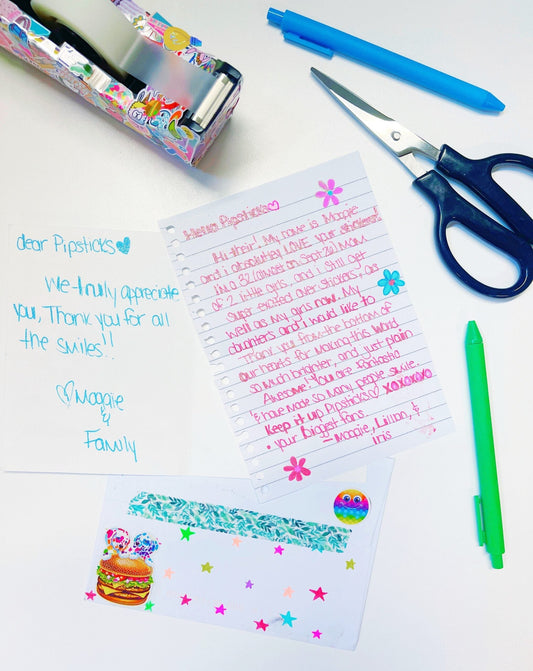 dear Pipsticks
We truly appreciate
you, Thank you for all
the smiles!!
Maggie
&
Family
Hello Pipsticks
Hi their! My name is Maggie
and i absolutley LOVE your stickers!
I'm a 32 (almost on Sept 26) Mom
of 2 little girls, and i still get
super excited over stickers, as
well as my girls now. My
daughters and i would like to
Thank you from the bottom of
our hearts for making this world
so much brighter, and just plain
Awesome! You are fantastic
& have made so many people smile.
Keep it up Pipsticks xoxoxoxo
• your Biggest fans.
- Maggie, Lillian, &
Iris